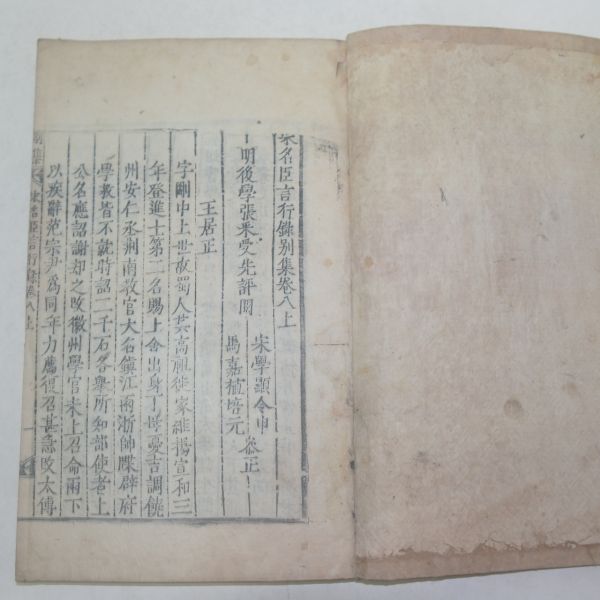 宋名臣言行錄别集卷八上
明後學張采受先評閱
宋學顯令申
馬嘉植培元
叅正
王居正
字剛中上世故蜀人其高祖徙家維揚宣和三
年登進士第二名賜上舍出身丁母憂吉調饒
州安仁丞荆南教官大名鎮江兩浙帥牒辟府
學教皆不就時詔二千石各舉所知部使者上
公名應詔謝却之改徽州學官未上召命兩下
以疾辭范宗尹爲同年力薦復召甚急改太傅
别集 宋名臣言行錄卷八上